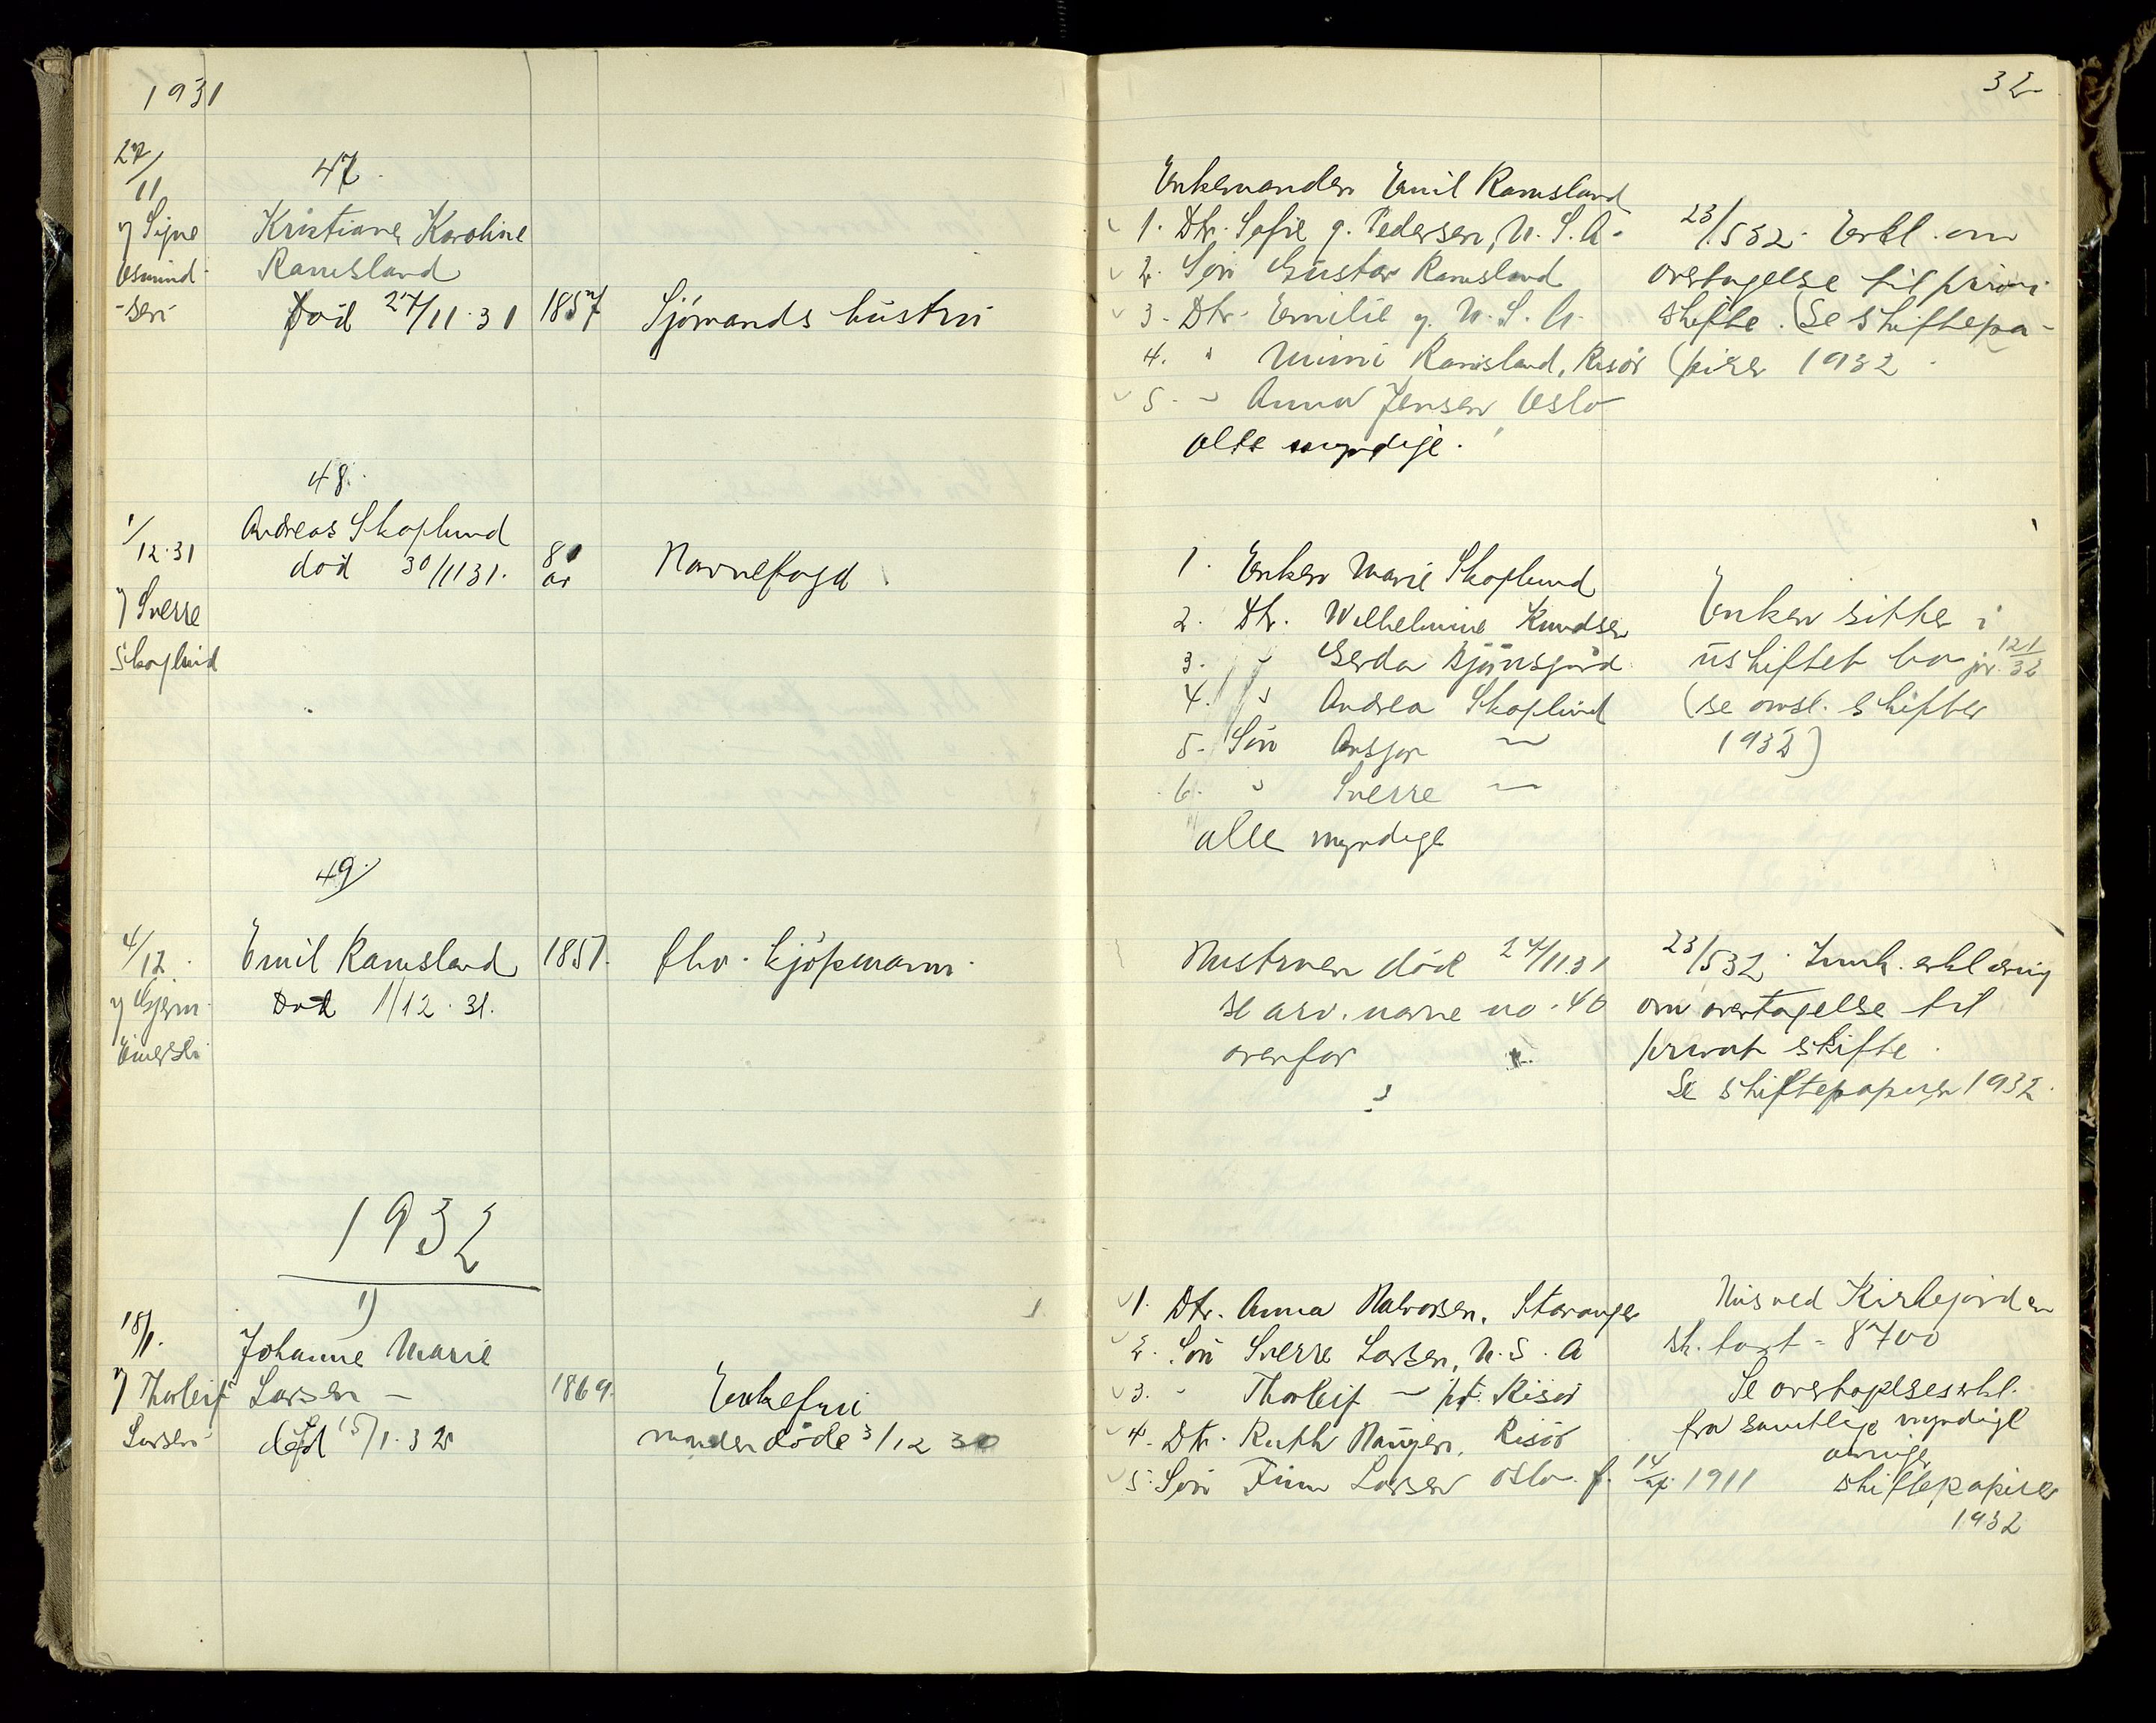 1931
32
27/11
47.
y Signe
Kristiane Karoline
Osmund-
Ramsland
-sen
Död 27/11.31
1857
Sjömands hustru
Enkemanden Emil Ramsland
1. Dtr. Sofie g. Pedersen, U.S.A.
2. Sön Gustav Ramsland
3. Dtr. Emilie g. U.S.A.
4. " Mimi Ramsland, Risör
5. " Anna Jensen, Oslo
alle myndige.
23/5 32. Erkl. om
overtagelse til privat
skifte. (Se skiftepa-
(pirer 1932.
48.
1/12.31
Andreas Skoplund
död 30/11 31.
80 år
Havnefogd
y Sverre
Skoplund
1. Enken Marie Skoplund
2. Dtr. Wilhelmine Knudsen
3. " Gerda
4. " Andrea Skoplund
5. Sön Ansgar "
6. " Sverre "
alle myndige
Enken sitter i
uskiftet bo jr. 121/32
(se omsl. skifter
1932)
49/
4/12.
Emil Ramsland
1851.
fhv. kjöpmann.
Död 1/12.31.
Hustruen död 27/11 31
se arv. navne no. 40
ovenfor
23/5 32. Innk. erklæring
om overtagelse til
privat skifte.
Se skiftepapirer 1932.
1932
1)
18/1.
Johanne Marie
y Thorleif
Larsen
Larsen
död 15/1.32
1869.
Enkefru
manden döde 3/12 30
1. Dtr. Anna Halvorsen, Stavanger
2. Sön Sverre Larsen, U.S.A
3. " Thorleif " pt. Risör
4. Dtr. Ruth Haugen, Risör
5. Sön Finn Larsen Oslo f. 1911
Hus ved Kirkegården
sk. takst = 8700
Se overtagelseserkl.
fra samtlige myndige
arvinger
skiftepapirer
1932